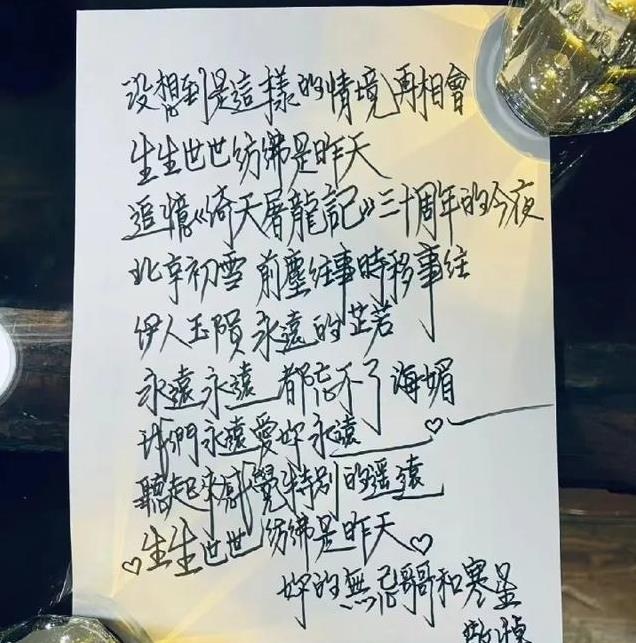 没想到是這樣的情境再相會
生生世世彷彿是昨天
追憶《倚天屠龍記》三十周年的今夜
北京初雪 前塵往事時移事往
伊人玉隕 永遠的芷若
永遠永遠 都忘不了海媚
我們永遠愛妳 永遠
聽起來感覺特別的遥遠
生生世世彷彿是昨天
妳的無忌哥和寒星